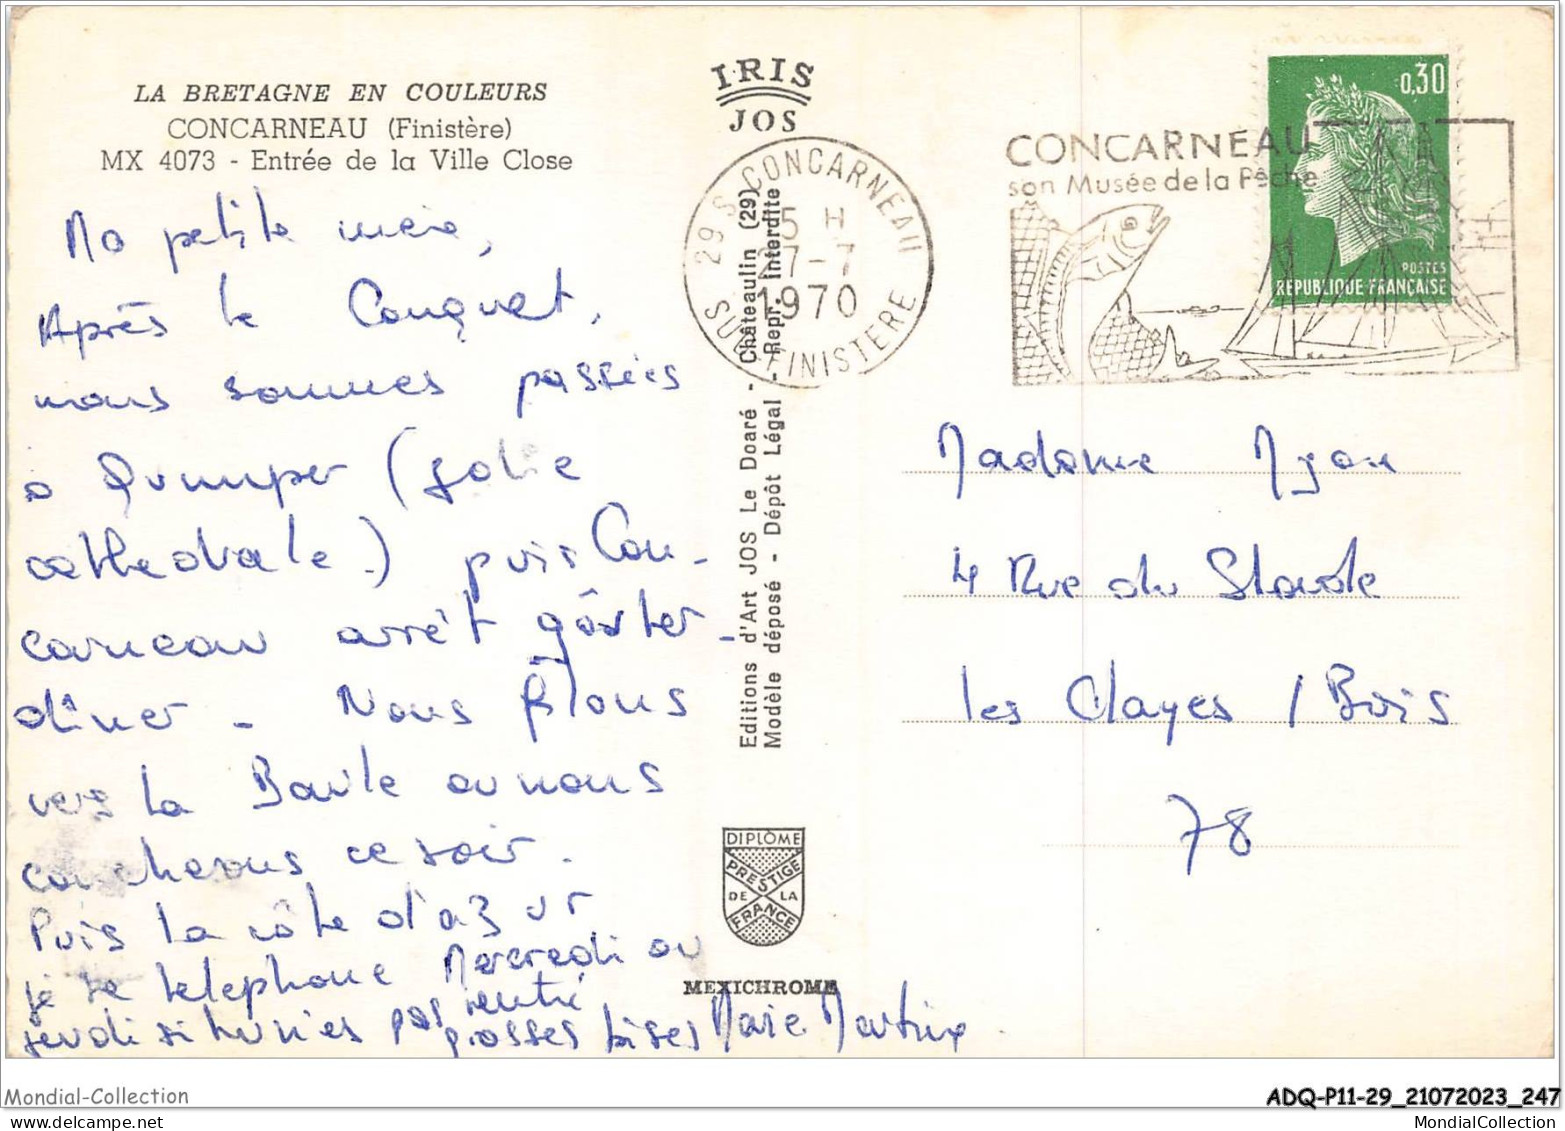 LA BRETAGNE EN COULEURS
CONCARNEAU (Finistère)
MX 4073 - Entrée de la Ville Close
Ma petite mère,
Après le Conquet,
nous sommes passées
à Quimper (jolie
cathédrale) puis Con-
carneau arrêt goûter-
dîner - Nous filons
vers La Baule ou nous
coucherons ce soir.
Puis la côte d'azur
je te telephone Mercredi ou
jeudi si tu n'es pas rentré
grosses bises Marie Martine
IRIS
JOS
29 S CONCARNEAU
15 H
27-7
1970
SUD FINISTERE
Editions d'Art JOS Le Doaré - Châteaulin (29)
Modèle déposé - Dépôt Légal - Repr. Interdite
DIPLÔME
PRESTIGE
DE LA
FRANCE
MEXICHROME
CONCARNEAU
son Musée de la Pêche
0,30
POSTES
REPUBLIQUE FRANÇAISE
Madame Myon
4 Rue du Stade
les Clayes / Bois
78
Mondial-Collection
ADQ-P11-29_21072023_247
MondialCollection.com